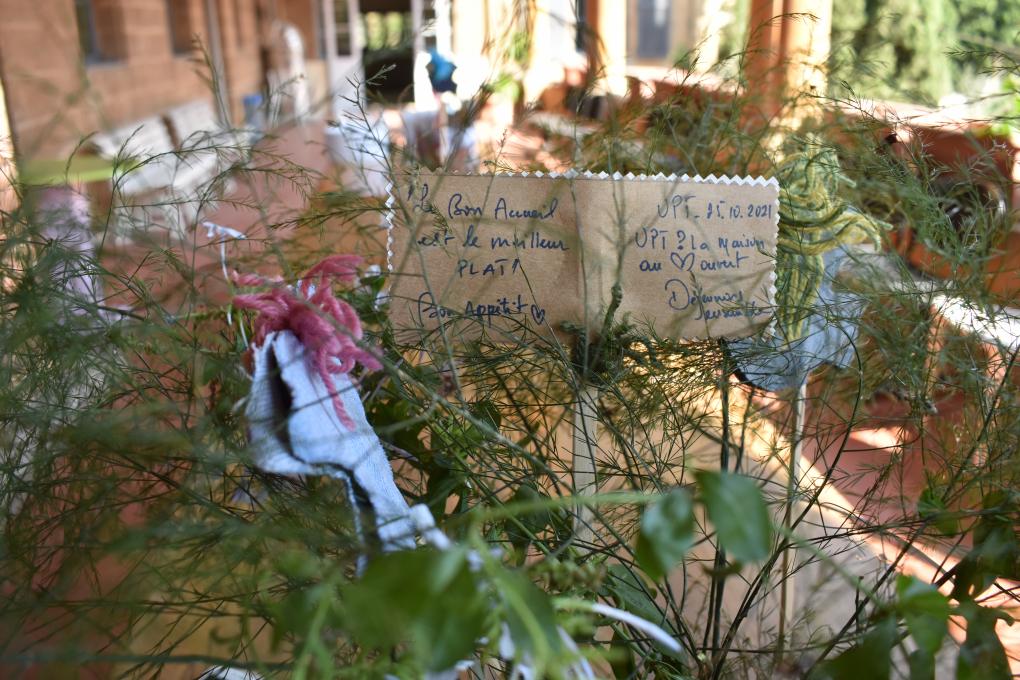 "Le Bon Accueil
est le meilleur
PLAT"
Bon Appétit ♡
UPT_ 25.10.2021
UPT ? La maison
au ♡ ouvert